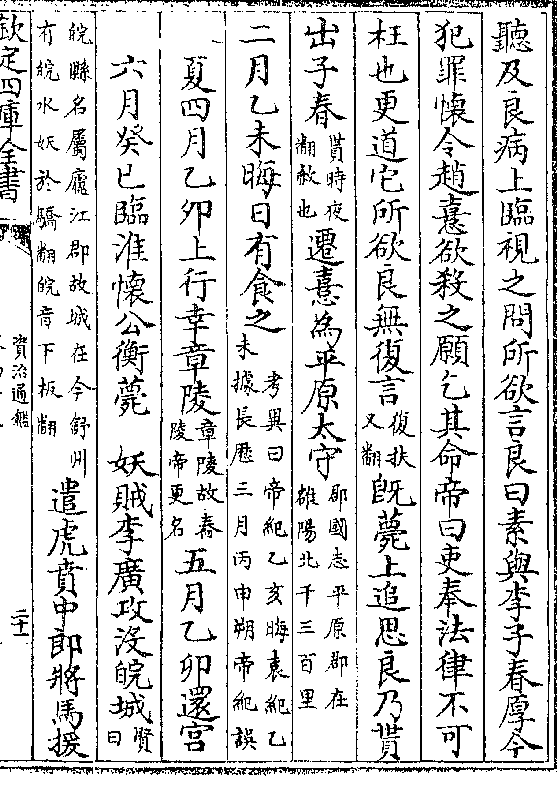 聽及良病上臨視之問所欲言良曰素與李子春厚今
犯罪懷令趙憙欲殺之願乞其命帝曰吏奉法律不可
枉也更道它所欲良無復言復扶又翻旣薨上追思良乃貰
出子春貰時夜翻赦也遷憙為平原太守郡國志平原郡在雒陽北千三百里
二月乙未晦日有食之考異曰帝紀乙亥晦袁紀乙未據長歷三月丙申朔帝紀誤
夏四月乙卯上行幸章陵章陵故舂陵帝更名五月乙卯還宫
六月癸巳臨淮懷公衡薨 妖賊李廣攻沒皖城賢曰
皖縣名屬廬江郡故城在今舒州有皖水妖於驕翻皖音下板翻遣虎賁中郎將馬援
欽定四庫全書
資治通鑑
二十